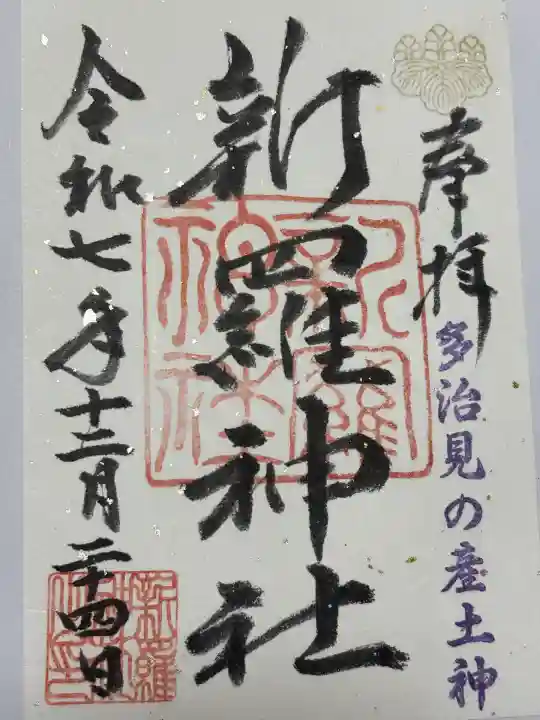 奉拝
多治見の産土神
新羅神社
令和七年十二月二十四日
新羅神社